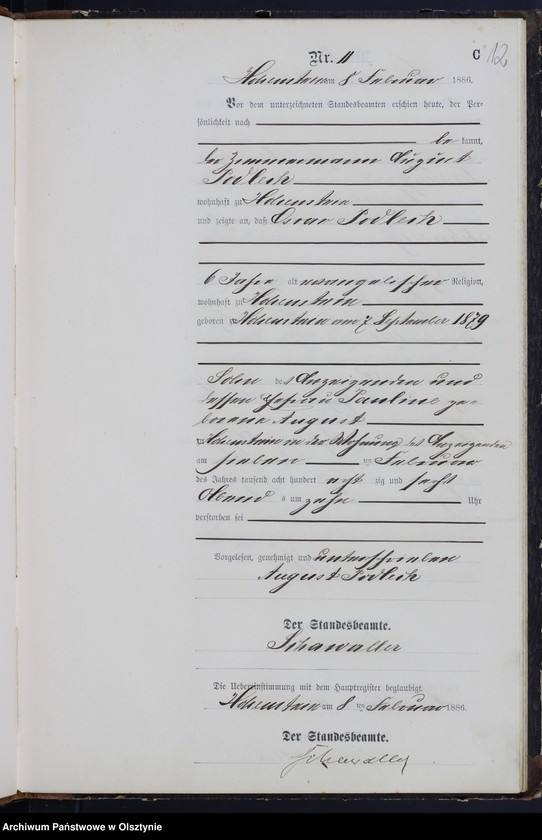 C 12
Nr. 11
Hohenstein am 8 Februar 1886.
Vor dem unterzeichneten Standesbeamten erschien heute, der Per-
sönlichkeit nach
be kannt,
der Zimmermann August
Podlech
wohnhaft zu Hohenstein
und zeigte an, daß Oscar Podlech
6 Jahre alt evangelischer Religion,
wohnhaft zu Hohenstein
geboren zu Hohenstein am 7 September 1879
Sohn des Anzeigenden und
dessen Ehefrau Pauline ge-
borene August
zu Hohenstein in der Wohnung des Anzeigenden
am sieben ten Februar
des Jahres tausend acht hundert acht zig und sechs
Abend s um zehn Uhr
verstorben sei
Vorgelesen, genehmigt und unterschrieben
August Podlech
Der Standesbeamte.
Schawaller
Die Uebereinstimmung mit dem Hauptregister beglaubigt.
Hohenstein am 8 ten Februar 1886.
Der Standesbeamte.
Schawaller
Archiwum Państwowe w Olsztynie